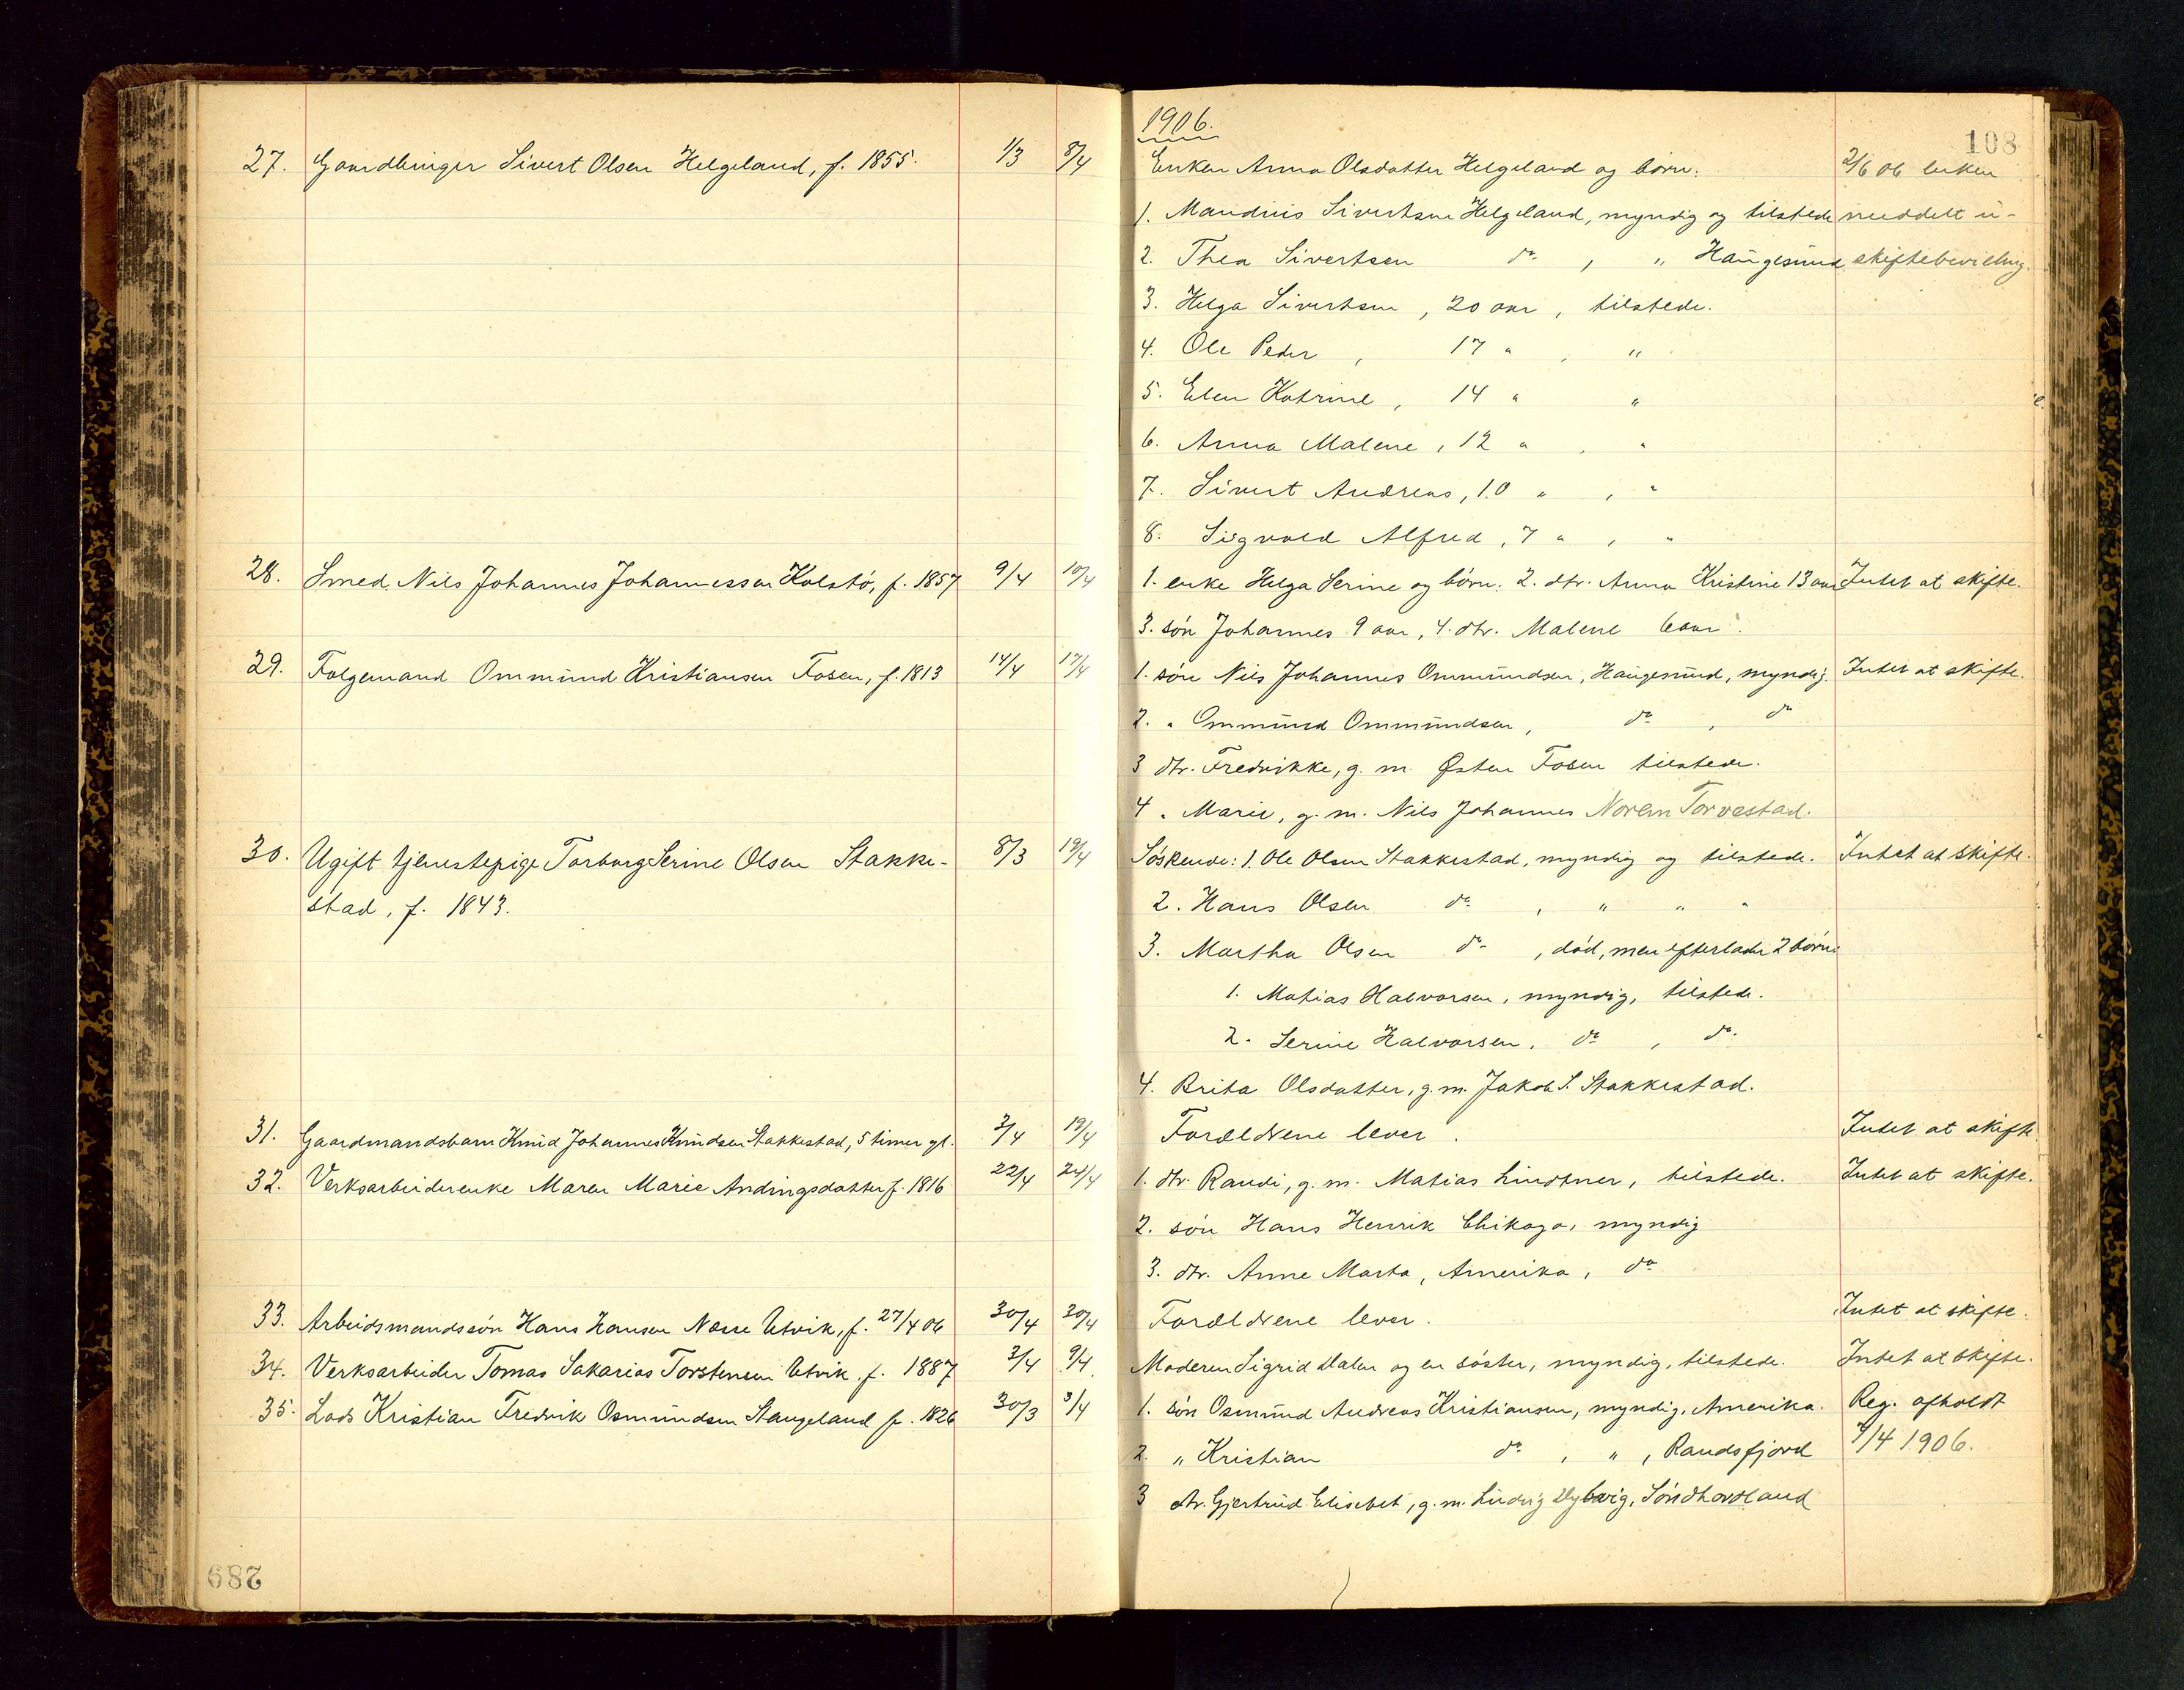 1906.
108
27. Gaardbruger Sivert Olsen Helgeland, f. 1855. 1/3 8/4 Enken Anna Olsdatter Helgeland og børn: 2/6 06 enken
1. Mandius Sivertsen Helgeland, myndig og tilstede meddelt u-
2. Thea Sivertsen do , " Haugesund skiftebevilling.
3. Helga Sivertsen, 20 aar, tilstede.
4. Ole Peder, 17 " , "
5. Elen Katrine, 14 " "
6. Anna Malene, 12 " , "
7. Sivert Andreas, 10 " , "
8. Sigvald Alfred, 7 " , "
28. Smed Nils Johannes Johannessen Kolstø, f. 1857 9/4 10/4 1. enke Helga Serine og børn: 2. dtr. Anna Kristine 13 aar Intet at skifte.
3. søn Johannes 9 aar, 4. dtr. Malene 6 aar.
29. Folgemand Ommund Kristiansen Fosen, f. 1813 14/4 17/4 1. søn Nils Johannes Ommundsen, Haugesund, myndig. Intet at skifte.
2. " Ommund Ommundsen, do , do
3 dtr. Fredrikke, g. m. Østen Fosen tilstede.
4 " Marie, g. m. Nils Johannes Norem Torvestad.
30. Ugift tjenestepige Torborg Serine Olsen Stakke- 8/3 19/4 Søskende: 1. Ole Olsen Stakkestad, myndig og tilstede. Intet at skifte.
stad, f. 1843. 2. Hans Olsen do , " " "
3. Martha Olsen do , død, men efterlader 2 børn:
1. Matias Halvorsen, myndig, tilstede.
2. Serine Halvorsen, do , do.
4. Brita Olsdatter, g. m. Jakob S. Stakkestad.
31. Gaardmandsbarn Knud Johannes Knudsen Stakkestad, 5 timer gl. 3/4 19/4 Forældrene lever. Intet at skifte
32. Verksarbeiderenke Maren Marie Andingsdatter f. 1816 22/4 24/4 1. dtr. Randi, g. m. Matias Lindtner, tilstede. Intet at skifte.
2. søn Hans Henrik Chikago, myndig
3. dtr. Anne Marta, Amerika, do
33. Arbeidsmandssøn Hans Hansen Næsse Utvik, f. 27/4 06 30/4 30/4 Forældrene lever. Intet at skifte.
34. Verksarbeider Tomas Sakarias Torstensen Utvik, f. 1887 3/4 9/4 Moderen Sigrid Dalen og en søster, myndig, tilstede. Intet at skifte.
35. Lods Kristian Fredrik Osmundsen Stangeland f. 1826 30/3 3/4 1. søn Osmund Andreas Kristiansen, myndig, Amerika. Reg. afholdt
2. " Kristian do , " , Randsfjord 9/4 1906.
3 dtr. Gjertrud Elisebet, g. m. Ludvig Dybvig, Søndhordland
289